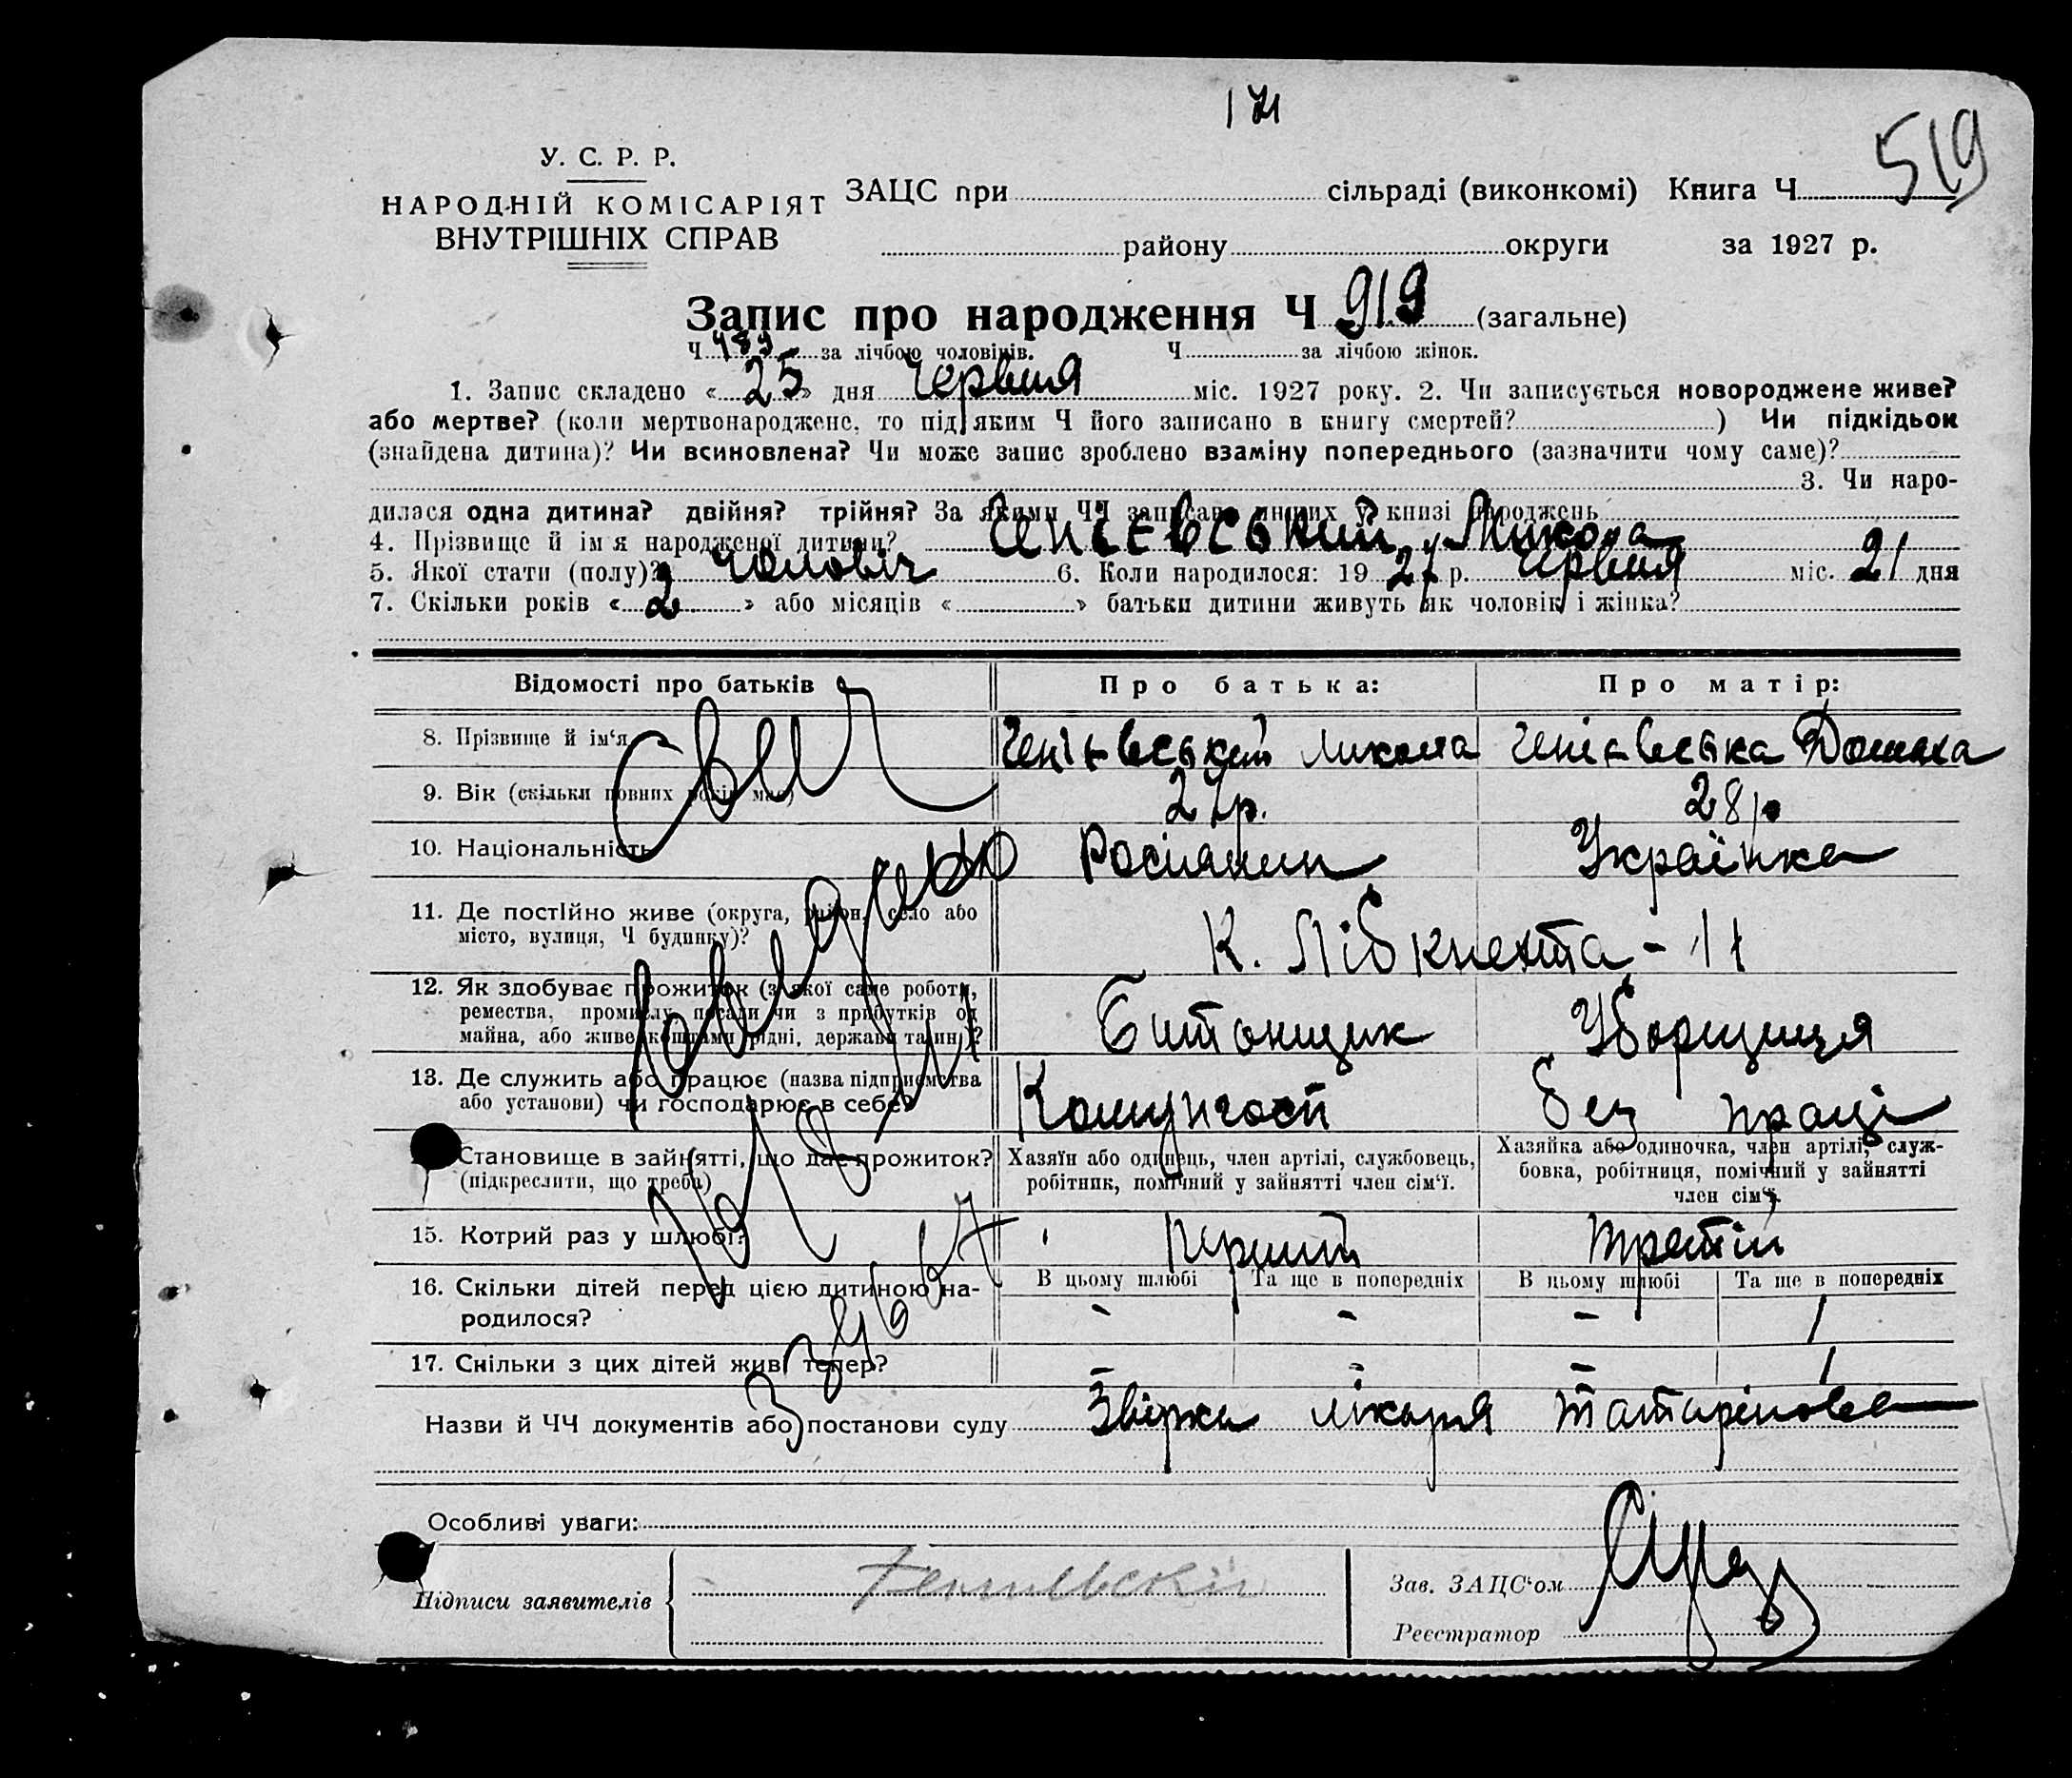 519
У. С. Р. Р.
НАРОДНІЙ КОМІСАРІЯТ
ВНУТРІШНІХ СПРАВ
ЗАЦС при сільраді (виконкомі) Книга Ч
району округи за 1927 р.
Запис про народження Ч 919 (загальне)
Ч 489 за лічбою чоловіків. Ч за лічбою жінок.
1. Запис складено « 25 » дня Червня міс. 1927 року. 2. Чи записується новороджене живе?
або мертве? (коли мертвонароджене, то під яким Ч його записано в книгу смертей? ) Чи підкідьок
(знайдена дитина)? Чи всиновлена? Чи може запис зроблено взаміну попереднього (зазначити чому саме)?
3. Чи наро-
дилася одна дитина? двійня? трійня? За якими ЧЧ записано инших у книзі народжень
4. Прізвище й ім'я народженої дитини? Генієвський Микола
5. Якої стати (полу)? чоловіч 6. Коли народилося: 19 27 р. червня міс. 21 дня
7. Скільки років « 2 » або місяців « » батьки дитини живуть як чоловік і жінка?
Відомості про батьків Про батька: Про матір:
8. Прізвище й ім'я Генієвський Микола Генієвська Домаха
9. Вік (скільки повних років має) 27р. 28р
10. Національність Росіянин Українка
11. Де постійно живе (округа, район, село або
місто, вулиця, Ч будинку)? К. Лібкнехта - 11
12. Як здобуває прожиток (з якої саме роботи,
ремества, промислу, посади чи з прибутків од
майна, або живе коштами рідні, держави та ин.)? Битонщик Уборщиця
13. Де служить або працює (назва підприємства
або установи) чи господарює в себе? Комунгосп без праці
Становище в зайнятті, що дає прожиток?
(підкреслити, що треба)
Хазяїн або одинець, член артілі, службовець,
робітник, помічний у зайнятті член сім'ї.
Хазяйка або одиночка, член артілі, служ-
бовка, робітниця, помічний у зайнятті
член сім'ї.
15. Котрий раз у шлюбі? Перший третій
16. Скільки дітей перед цією дитиною на-
родилося?
В цьому шлюбі Та ще в попередніх В цьому шлюбі Та ще в попередніх
- - - 1
17. Скільки з цих дітей живі тепер? - - - 1
Назви й ЧЧ документів або постанови суду Звірка лікаря Татарінова
Особливі уваги:
Підписи заявителів
Зав. ЗАЦС'ом
Реєстратор